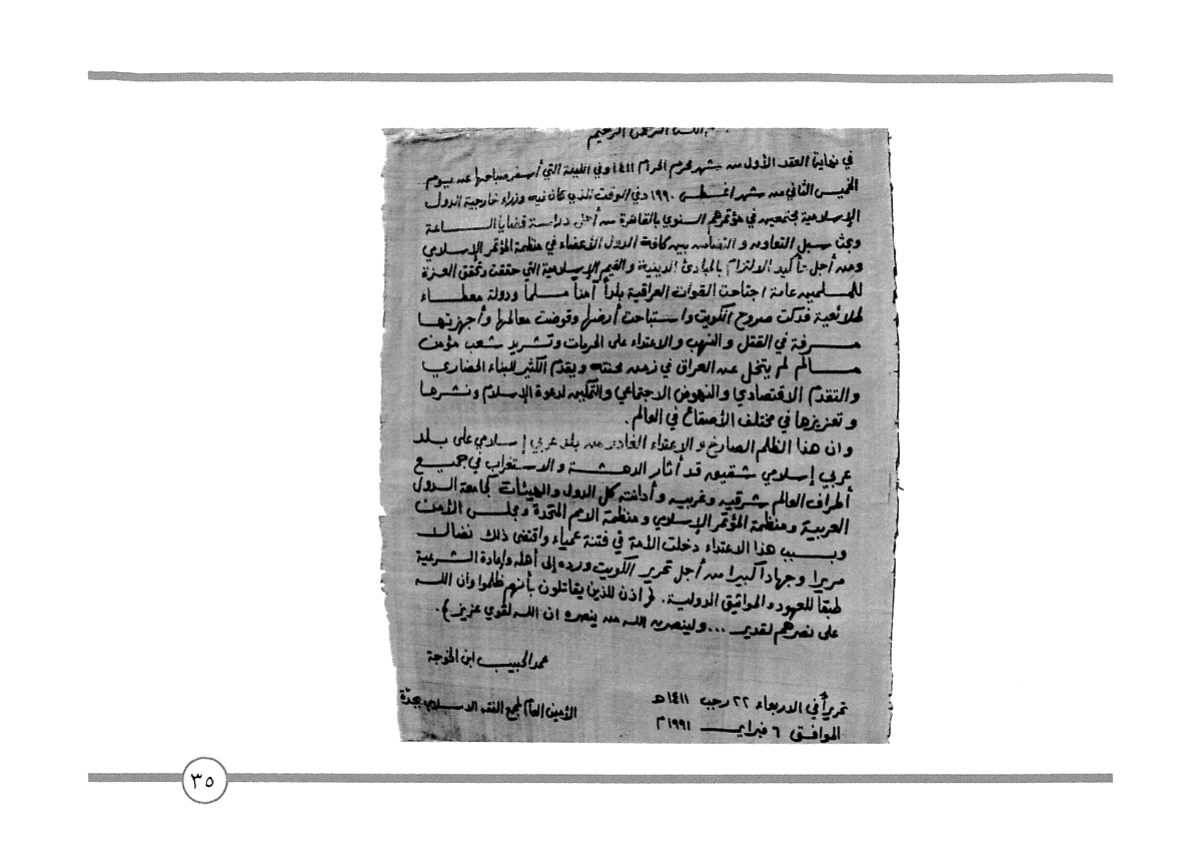 بسم الله الرحمن الرحيم
في نهاية العقد الأول من شهر محرم الحرام ١٤١١ وفي الليلة التي أسفر صباحها عن يوم
الخميس الثاني من شهر اغسطس ١٩٩٠ وفي الوقت الذي كان فيه وزراء خارجية الدول
الإسلامية مجتمعين في مؤتمرهم السنوي بالقاهرة من أجل دراسة قضايا الساعة
وبحث سبل التعاون والتضامن بين كافة الدول الأعضاء في منظمة المؤتمر الإسلامي
ومن أجل تأكيد الالتزام بالمبادئ الدينية والقيم الإسلامية التي حققت وتحقق العزة
للمسلمين عامة اجتاحت القوات العراقية بلداً آمناً مسلماً ودولة معطاء
طلائعية فدكت صروح الكويت واستباحت أرضها وقوضت معالمها وأجهزتها
مسرفة في القتل والنهب والاعتداء على الحرمات وتشريد شعب مؤمن
مسالم لم يتخل عن العراق في زمن محنته ويقدم الكثير للبناء الحضاري
والتقدم الاقتصادي والنهوض الاجتماعي والتمكين لدعوة الإسلام ونشرها
وتعزيزها في مختلف الأصقاع في العالم.
وان هذا الظلم الصارخ والاعتداء الغادر من بلد عربي إسلامي على بلد
عربي إسلامي شقيق قد أثار الدهشة والاستغراب في جميع
أطراف العالم شرقيه وغربيه وأدانته كل الدول والهيئات كجامعة الدول
العربية ومنظمة المؤتمر الإسلامي ومنظمة الامم المتحدة ومجلس الأمن
وبسبب هذا الاعتداء دخلت الأمة في فتنة عمياء واقتضى ذلك نضالا
مريرا وجهاداً كبيرا من أجل تحرير الكويت ورده إلى أهله وإعادة الشرعية
طبقاً للعهود والمواثيق الدولية. ﴿ اذن للذين يقاتلون بأنهم ظلموا وان الله
على نصرهم لقدير ... ولينصرن الله من ينصره ان الله لقوي عزيز ﴾.
محمد الحبيب ابن الخوجة
الأمين العام لمجمع الفقه الاسلامي بجدّة
تحريراً في الاربعاء ٢٢ رجب ١٤١١ هـ
الموافق ٦ فبراير ١٩٩١ م
٣٥